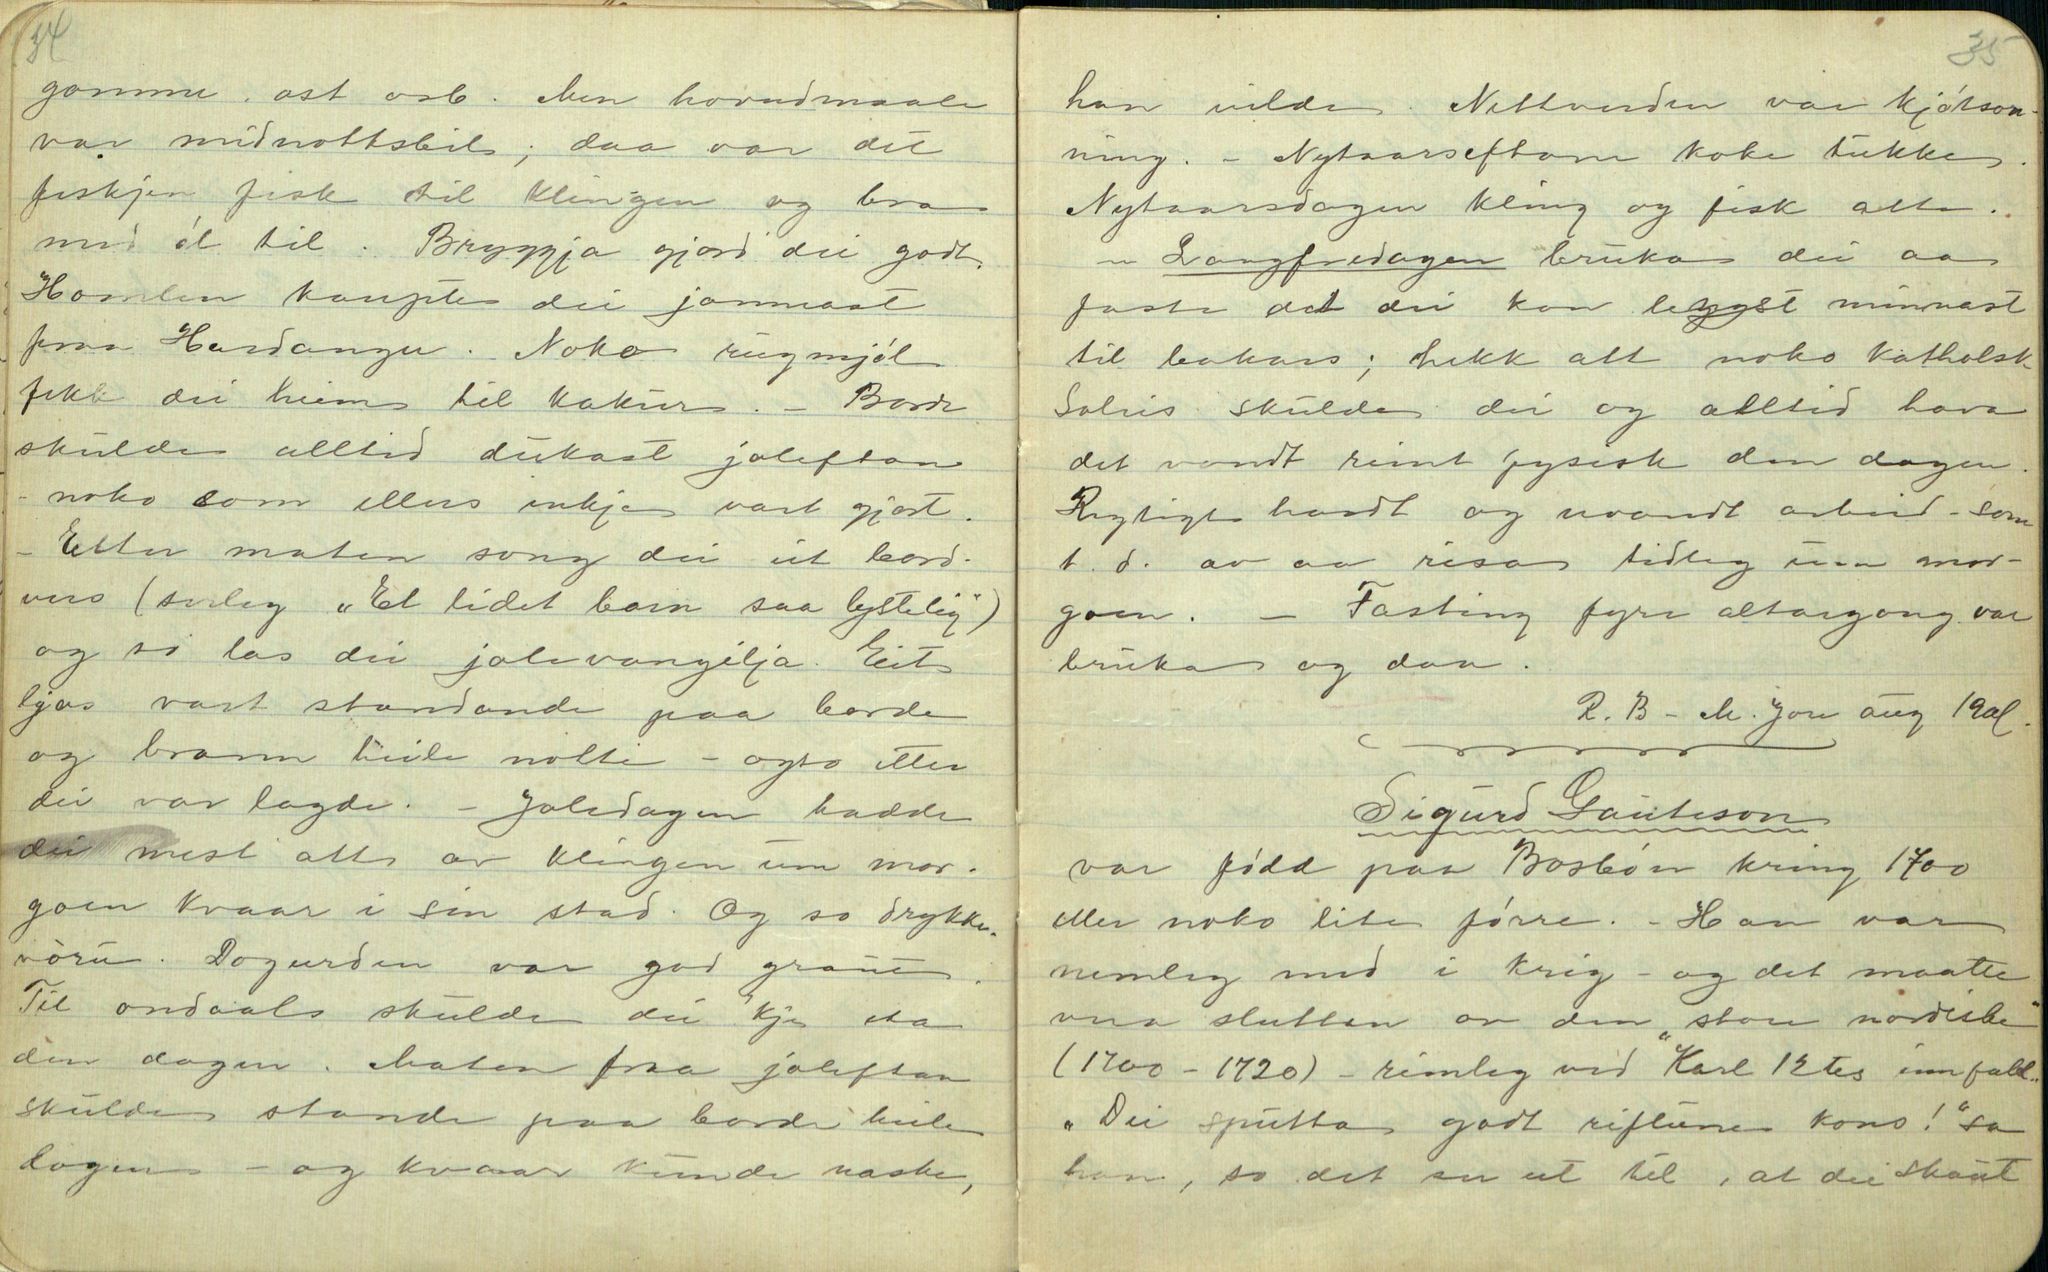 34
gamme ost osb. Men hovudmaale
var midnottsbil; daa var det
feskjen fisk til klingen og bra
med øl til. Bryggja gjord' dei godt.
Homlen kaupte dei jamnast
fraa Hardanger. Noko rugmjøl
fekk dei heim til kakur. – Borde
skulde alltid dukast joleftan
- noko som ellers inkje vart gjort.
– Etter maten song dei ut bord-
vers (serleg „Et lidet barn saa lystelig")
og so las dei jolevangelja. Eit
ljos vart standande paa borde
og brann heile notti – ogso etter
dei var lagde. – Joledagen hadde
dei mest att av klingen um mor-
goen kvaar i sin stad. Og so drykke-
vøru. Dogurden var god graut.
Til ondaals skulde dei 'kje eta
den dagen. Maten fraa joleftan
skulde stande paa borde heile
dagen – og kvaar kunde naske,
35
han vilde. Nettverden var kjøtson-
ning. – Nyttaarseftane koke tukke.
Nyttaarsdagen kling og fisk atte.
– Langfredagen bruka dei aa
faste det dei kan lengst minnast
til bakars; hekk att noko katholsk.
Soleis skulde dei og alltid hava
det vondt reint fysisk den dagen.
Rygtigt hardt og uvandt arbeid – som
t. d. av aa risa tidleg um mor-
goen. – Fasting fyre altargong var
bruka og daa.
R. B – M. Jou aug 1901.
Sigurd Gauteson
var fødd paa Bosbøn kring 1700
eller noko lite førre. – Han var
nemleg med i krig – og det maatte
vera slutten av den „store nordiske"
(1700 – 1720) – rimleg ved Karl 12tes innfall.
„Dei sputta godt riflune kons!" sa
han, so det ser ut til, at dei skaut